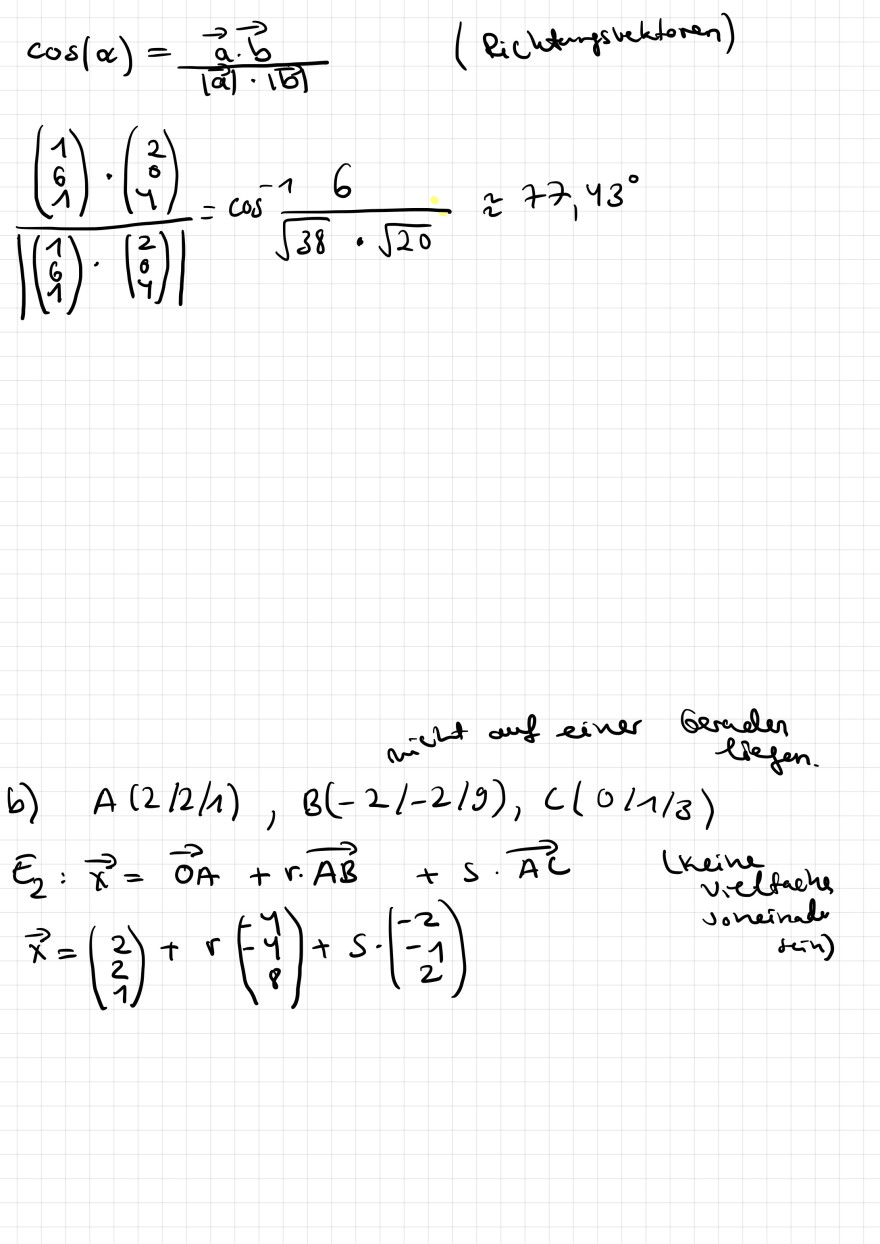 cos(α) = a⃗ · b⃗ / |a⃗| · |b⃗| (Richtungsvektoren)
(1 6 1) · (2 0 4) / |(1 6 1) · (2 0 4)| = cos⁻¹ 6 / √38 · √20 ≈ 77,43°
nicht auf einer Geraden
liegen.
b) A(2/2/1), B(-2/-2/9), C(0/1/3)
E₂: x⃗ = OA⃗ + r · AB⃗ + s · AC⃗ (keine
vielfache
voneinander
sein)
x⃗ = (2 2 1) + r (-4 -4 8) + s · (-2 -1 2)